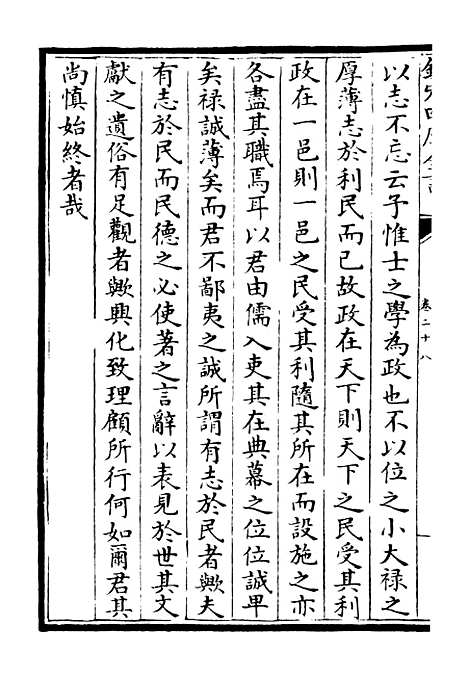 欽定四庫全書
卷二十八
以志不忘云予惟士之學為政也不以位之小大禄之
厚薄志於利民而已故政在天下則天下之民受其利
政在一邑則一邑之民受其利隨其所在而設施之亦
各盡其職焉耳以君由儒入吏其在典幕之位位誠卑
矣禄誠薄矣而君不鄙夷之誠所謂有志於民者歟夫
有志於民而民德之必使著之言辭以表見於世其文
獻之遺俗有足觀者歟興化致理顧所行何如爾君其
尚慎始終者哉